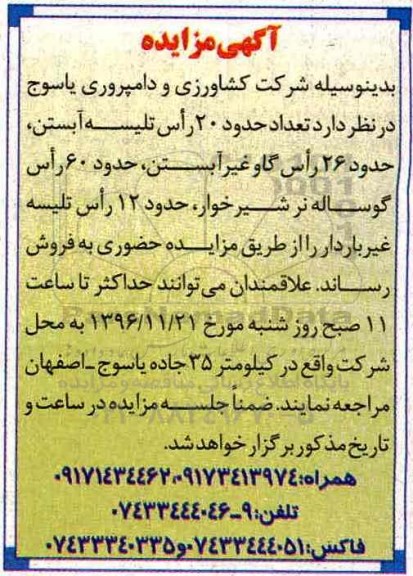 آگهی مزایده
بدینوسیله شرکت کشاورزی و دامپروری یاسوج
در نظر دارد تعداد حدود ۲۰ رأس تلیسه آبستن،
حدود ۲۶ رأس گاو غیر آبستن، حدود ۶۰ رأس
گوساله نر شیرخوار، حدود ۱۲ رأس تلیسه
غیرباردار را از طریق مزایده حضوری به فروش
رساند. علاقمندان می‌توانند حداکثر تا ساعت
۱۱ صبح روز شنبه مورخ ۱۳۹۶/۱۱/۲۱ به محل
شرکت واقع در کیلومتر ۳۵ جاده یاسوج ـ اصفهان
مراجعه نمایند. ضمناً جلسه مزایده در ساعت و
تاریخ مذکور برگزار خواهد شد.
همراه: ۰۹۱۷۳۴۱۳۹۷۴، ۰۹۱۷۱۴۳۴۴۶۲
تلفن: ۹ـ۰۷۴۳۳۴۴۴۰۴۶
فاکس: ۰۷۴۳۳۴۴۴۰۵۱ و ۰۷۴۳۳۳۴۰۳۳۵